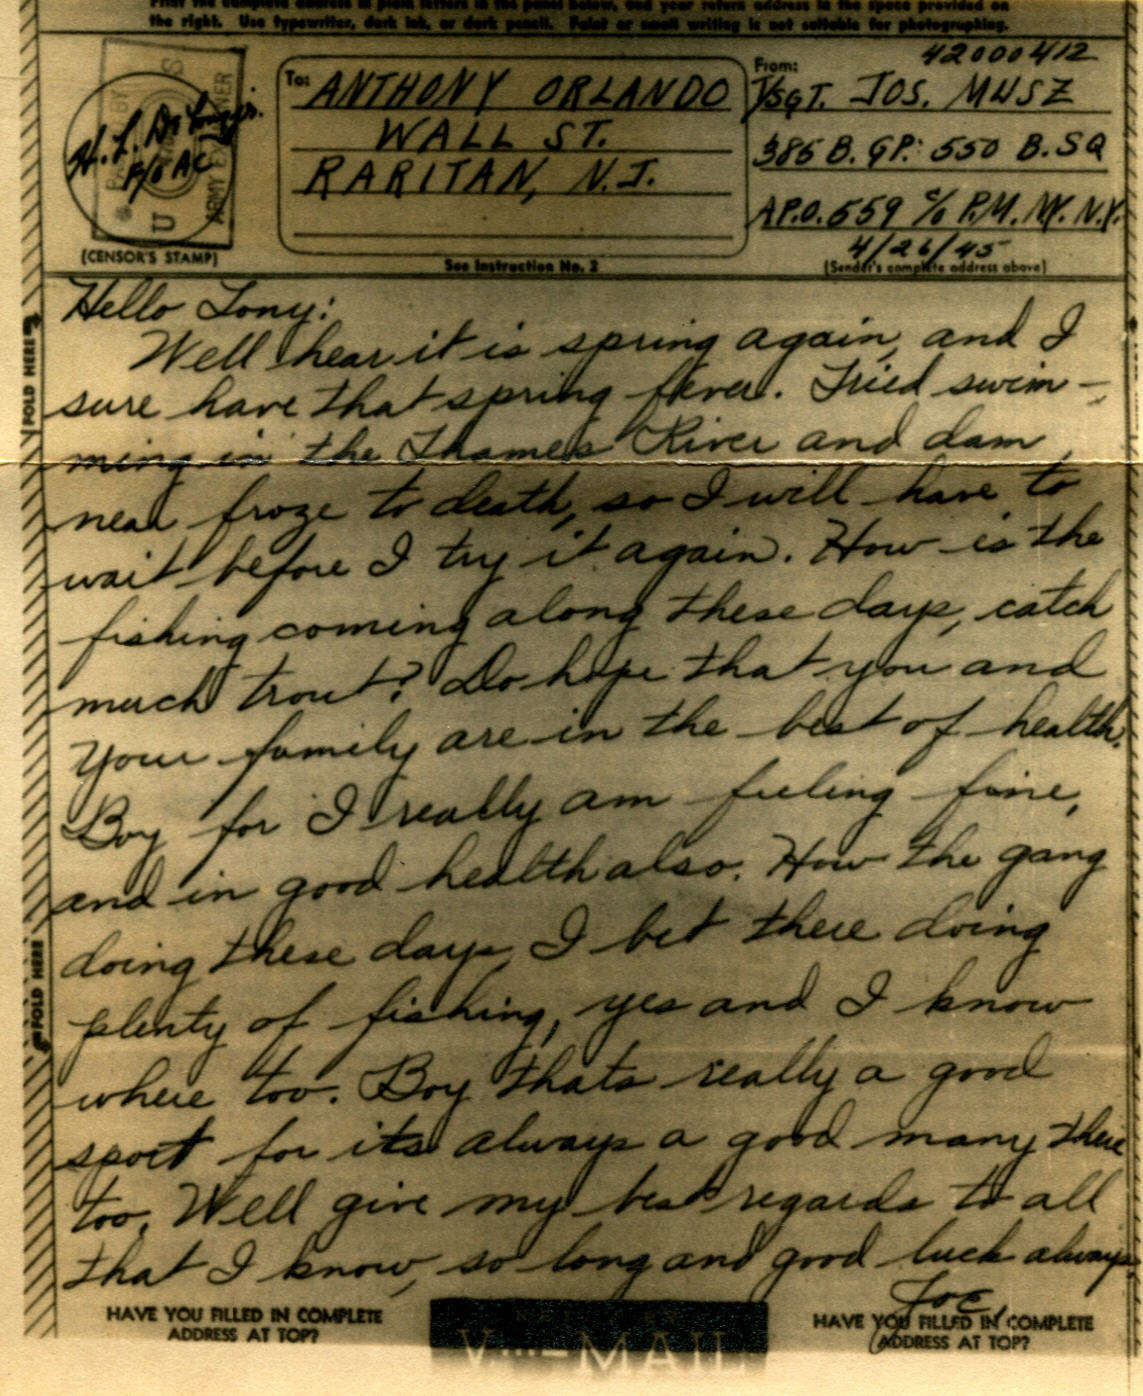 Print the complete address in plain letters in the panel below, and your return address in the space provided on
the right. Use typewriter, dark ink, or dark pencil. Faint or small writing is not suitable for photographing.
To:
ANTHONY ORLANDO
WALL ST.
RARITAN, N.J.
From:
42000412
T/SGT. JOS. MUSZ
385 B. GP. 550 B. SQ
A.P.O. 559 c/o P.M. NY. N.Y.
4/26/45
(CENSOR'S STAMP)
See Instruction No. 2
(Sender's complete address above)
Hello Tony:
Well hear it is spring again, and I
sure have that spring fever. Tried swim-
ming in the Thames River and dam
near froze to death, so I will have to
wait before I try it again. How is the
fishing coming along these days, catch
much trout? Do hope that you and
your family are in the best of health.
Boy for I really am feeling fine,
and in good health also. How the gang
doing these days, I bet there doing
plenty of fishing, yes and I know
where too. Boy thats really a good
sport for its always a good many there
too. Well give my best regards to all
that I know, so long and good luck always,
Joe.
FOLD HERE
FOLD HERE
HAVE YOU FILLED IN COMPLETE
ADDRESS AT TOP?
V···—MAIL
HAVE YOU FILLED IN COMPLETE
ADDRESS AT TOP?